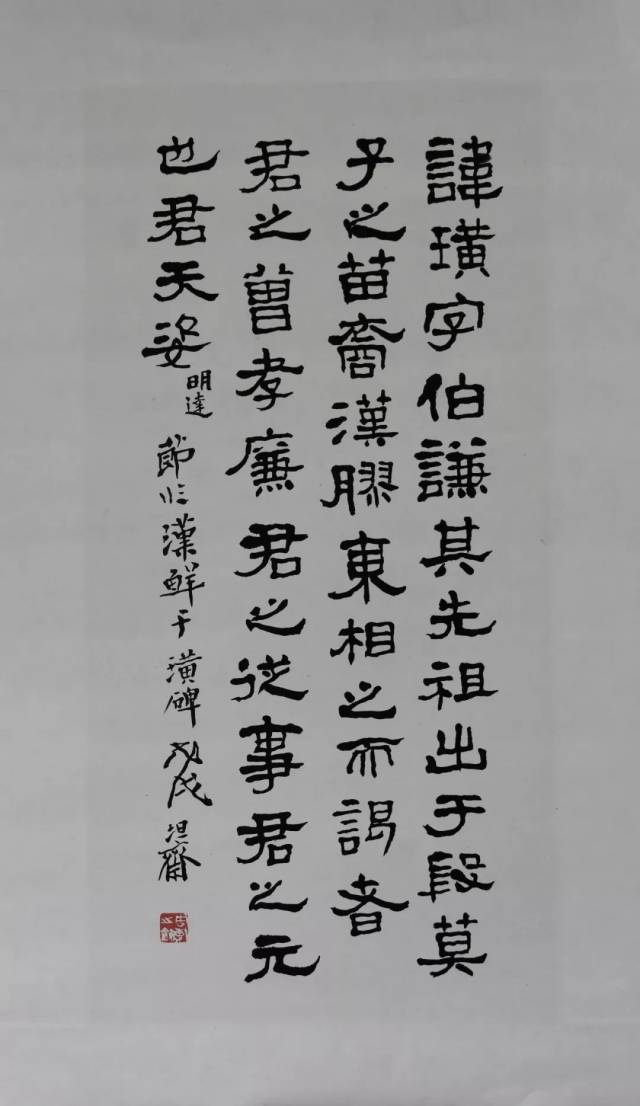 諱璜字伯謙其先祖出于段莫
子之苗裔漢膠東相之而謁者
君之曾孝廉君之從事君之元
也君天姿明達 節临漢鮮于璜碑 戊戌 坦齋